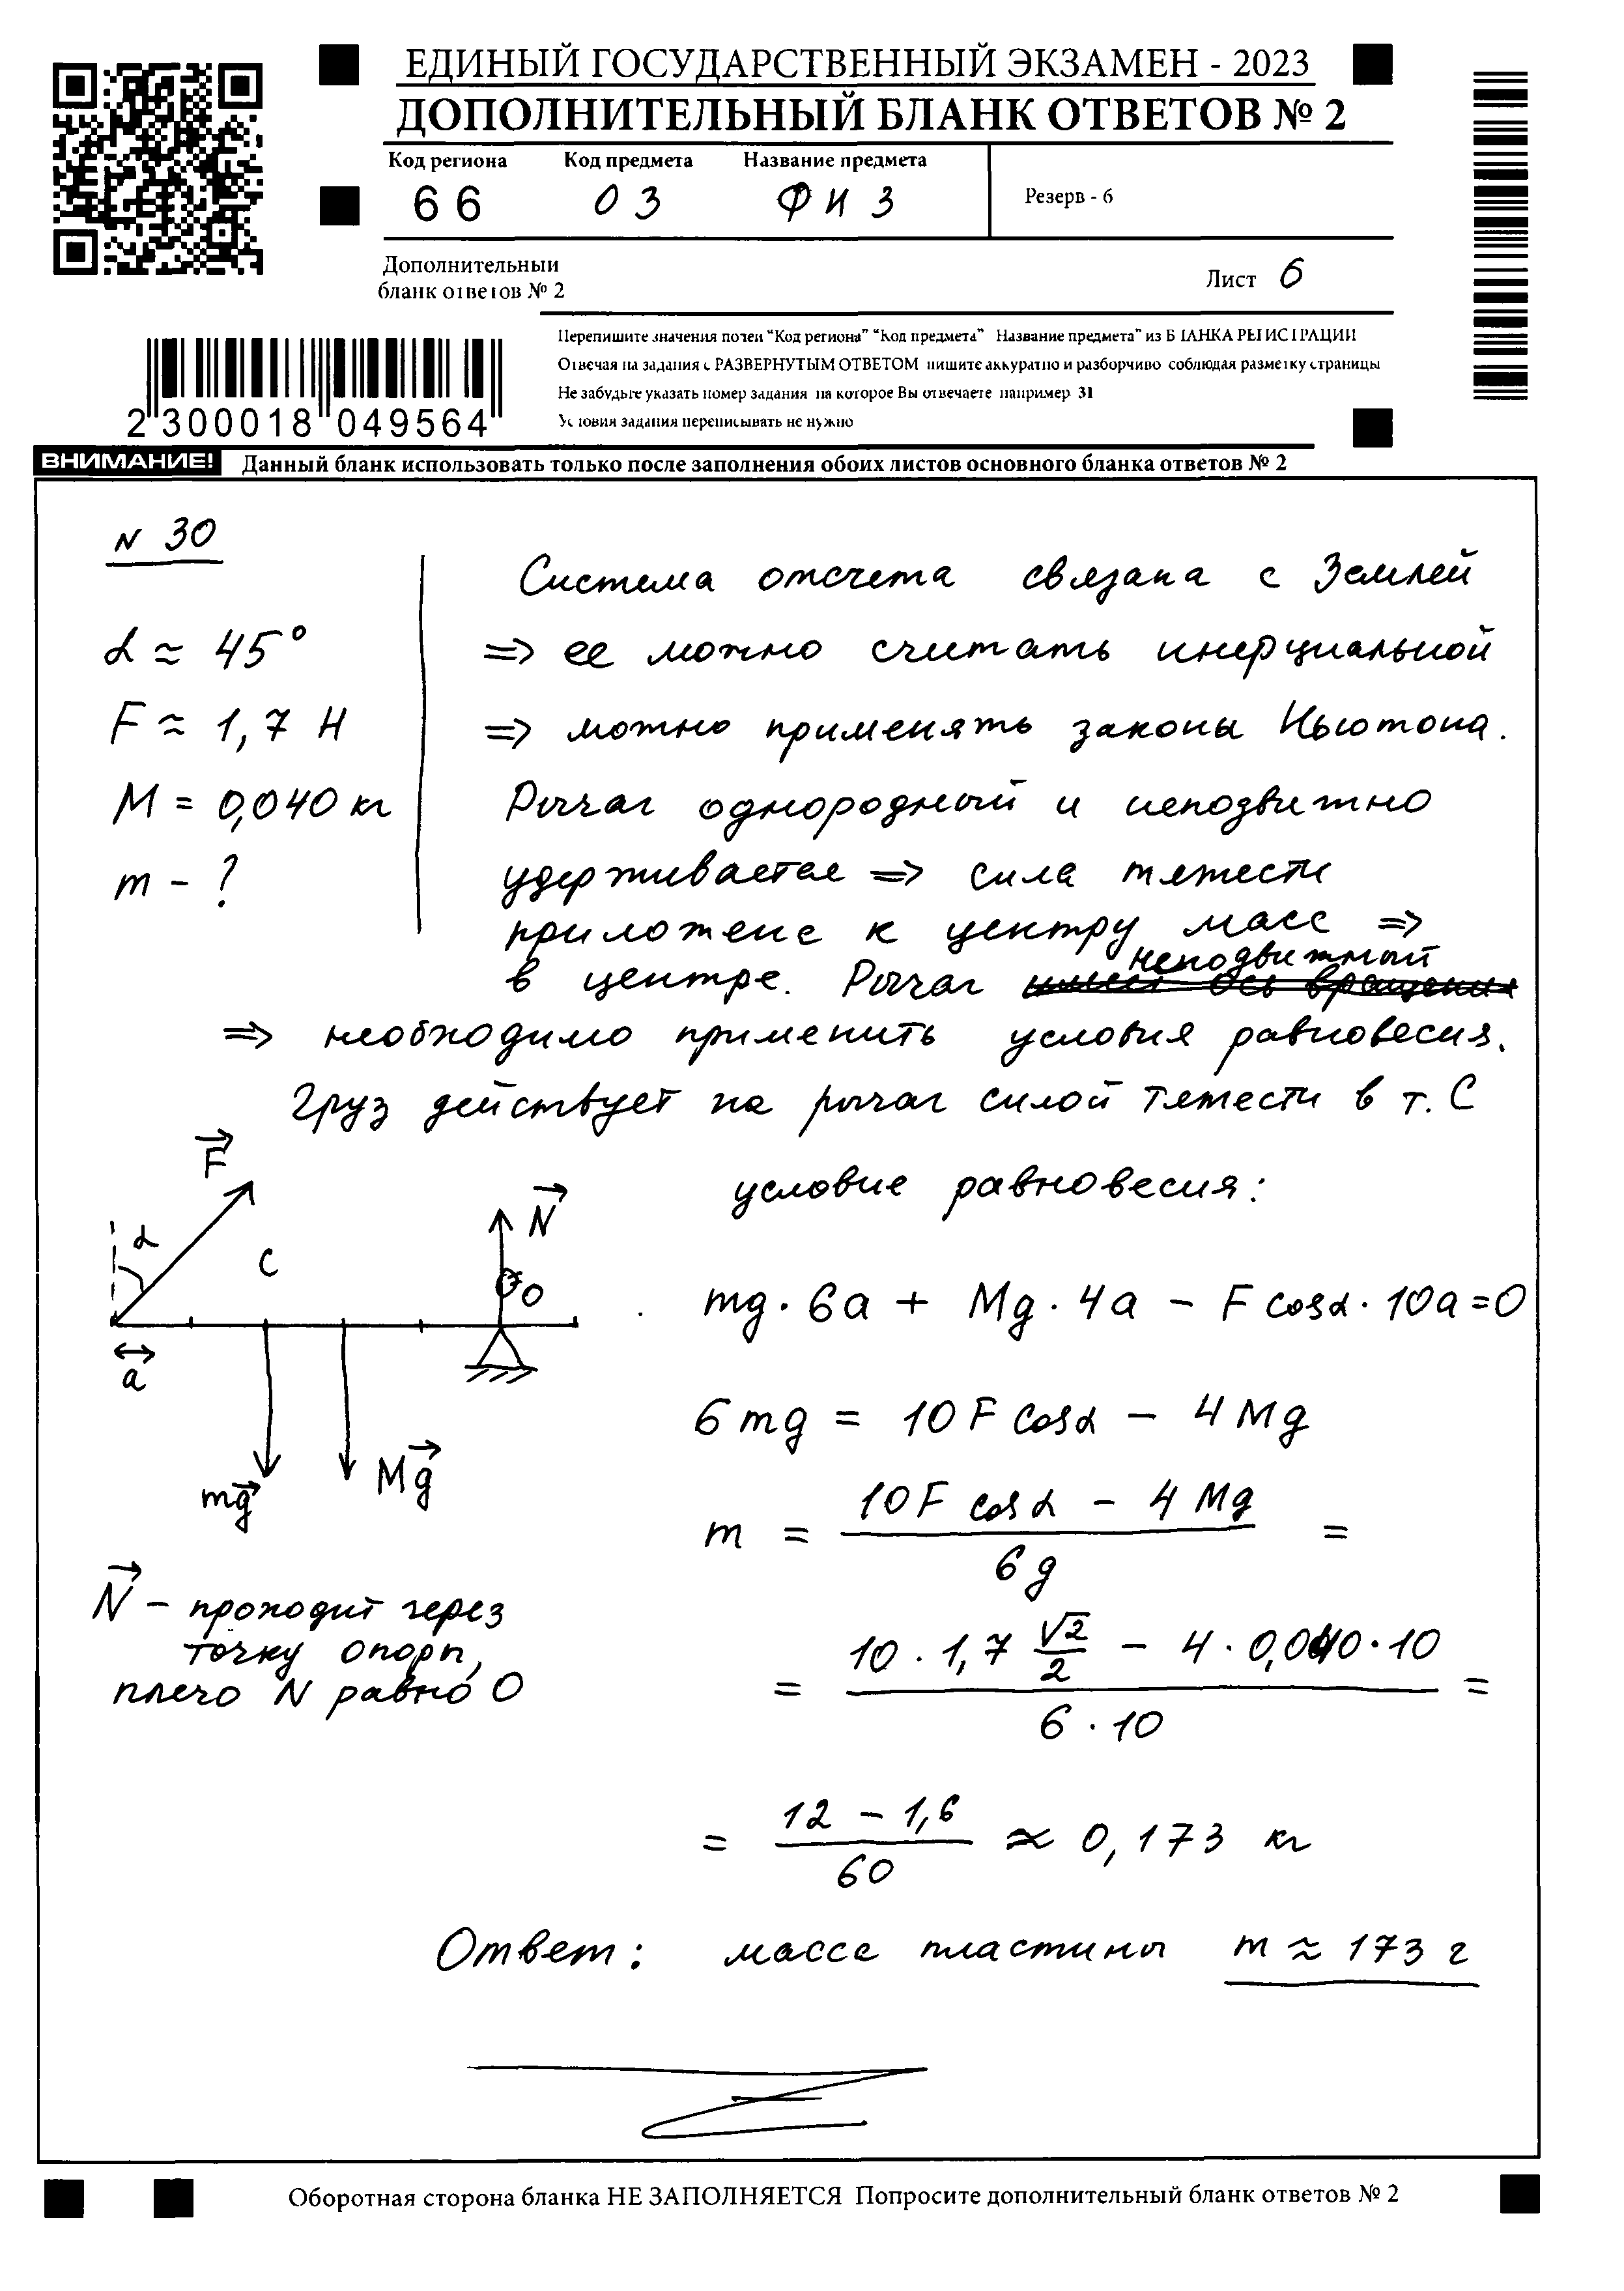 ЕДИНЫЙ ГОСУДАРСТВЕННЫЙ ЭКЗАМЕН - 2023
ДОПОЛНИТЕЛЬНЫЙ БЛАНК ОТВЕТОВ № 2
Код региона Код предмета Название предмета
66 03 ФИЗ
Резерв - 6
Дополнительный
бланк ответов № 2
Лист 6
Перепишите значения полей "Код региона" "Код предмета" Название предмета" из БЛАНКА РЕГИСТРАЦИИ
Отвечая на задания с РАЗВЕРНУТЫМ ОТВЕТОМ пишите аккуратно и разборчиво соблюдая разметку страницы
Не забудьте указать номер задания на которое Вы отвечаете например 31
Условия задания переписывать не нужно
2 300018 049564
ВНИМАНИЕ! Данный бланк использовать только после заполнения обоих листов основного бланка ответов № 2
N 30
α ≈ 45°
F ≈ 1,7 Н
M = 0,040 кг
m - ?
Система отсчета связана с Землей
=> ее можно считать инерциальной
=> можно применять законы Ньютона.
Рычаг однородный и неподвижно
удерживается => сила тяжести
приложена к центру масс =>
в центре. Рычаг имеет ось вращения неподвижный
=> необходимо применить условия равновесия.
Груз действует на рычаг силой тяжести в т. С
F
α
C
N
O
a
mg
Mg
N - проходит через
точку опоры,
плечо N равно 0
условие равновесия:
mg · 6a + Mg · 4a - F cosα · 10a = 0
6 mg = 10 F cosα - 4 Mg
m = (10 F cosα - 4 Mg) / 6g =
= (10 · 1,7 √2/2 - 4 · 0,040 · 10) / (6 · 10) =
= (12 - 1,6) / 60 ≈ 0,173 кг
Ответ: масса пластины m ≈ 173 г
Оборотная сторона бланка НЕ ЗАПОЛНЯЕТСЯ Попросите дополнительный бланк ответов № 2